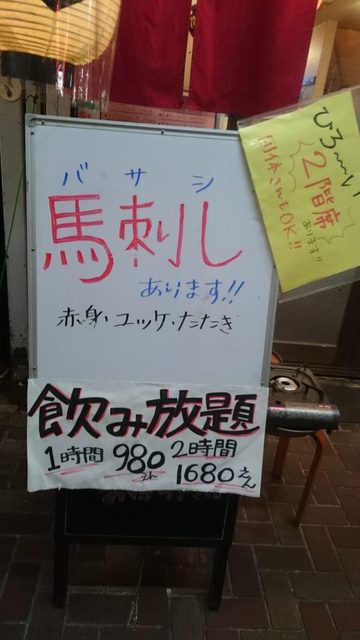 バサシ
馬刺し
あります!!
赤身、ユッケ、たたき
飲み放題
1時間 980えん 2時間 1680えん
ひろ〜い
2階席
あります!!
団体さんもOK!!